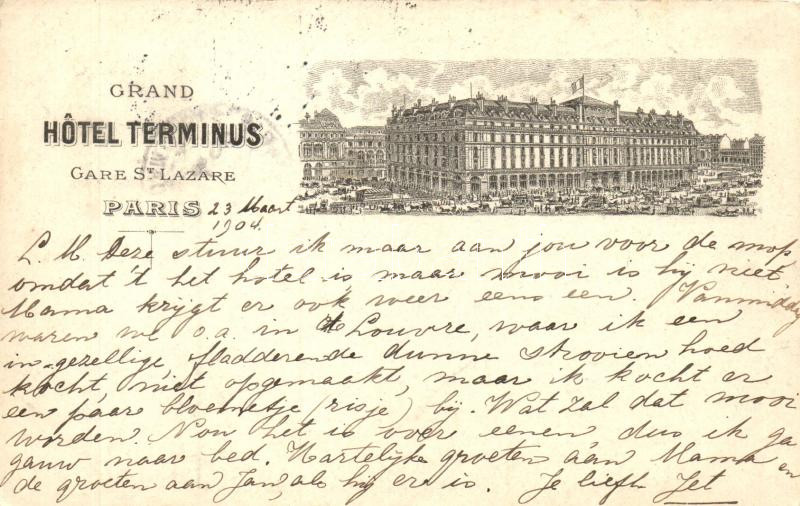 GRAND
HÔTEL TERMINUS
GARE ST LAZARE
PARIS 23 Maart
1904.
L. M. Deze stuur ik maar aan jou voor de mop
omdat 't het hotel is, maar mooi is hij niet
Mama krijgt er ook weer eens een. Vanmiddag
waren we o.a. in 't Louvre, waar ik een
in-gezellige, fladderende dunne strooien hoed
kocht, niet opgemaakt, maar ik kocht er
een paar bloemetje (risje) bij. Wat zal dat mooi
worden. Nou het is over eenen dus ik ga
gauw naar bed. Hartelijke groeten áán Mama en
de groeten aan Jan, als hij er is. Je liefh Jet